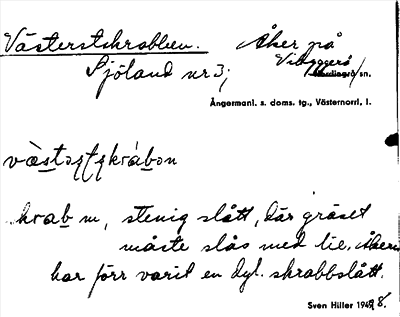 Västerstskrabben. Åker på
Sjöland nr 3; Vibyggerå sn.
Ångermanl. s. doms. tg., Västernorrl. l.
krab m, stenig slått, där gräset
måste slås med lie. Åkern
har förr varit en dyl. skrabbslått.
Sven Hiller 1948.